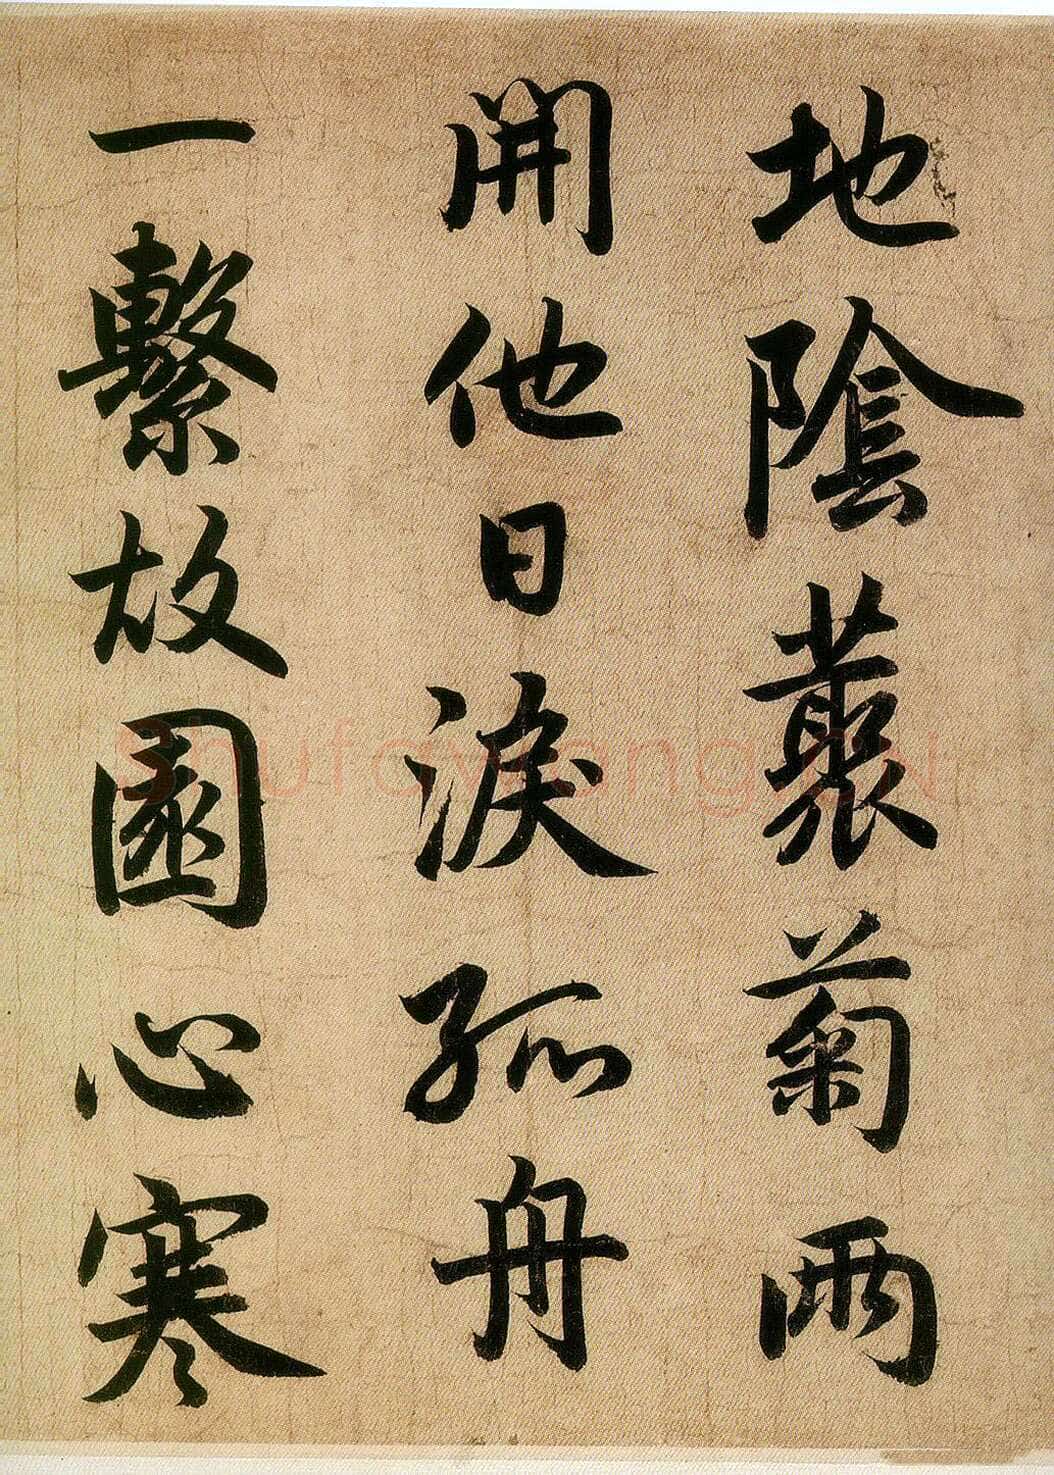 地陰藂菊兩
開他日淚孤舟
一繫故園心寒
Shufawang.CN